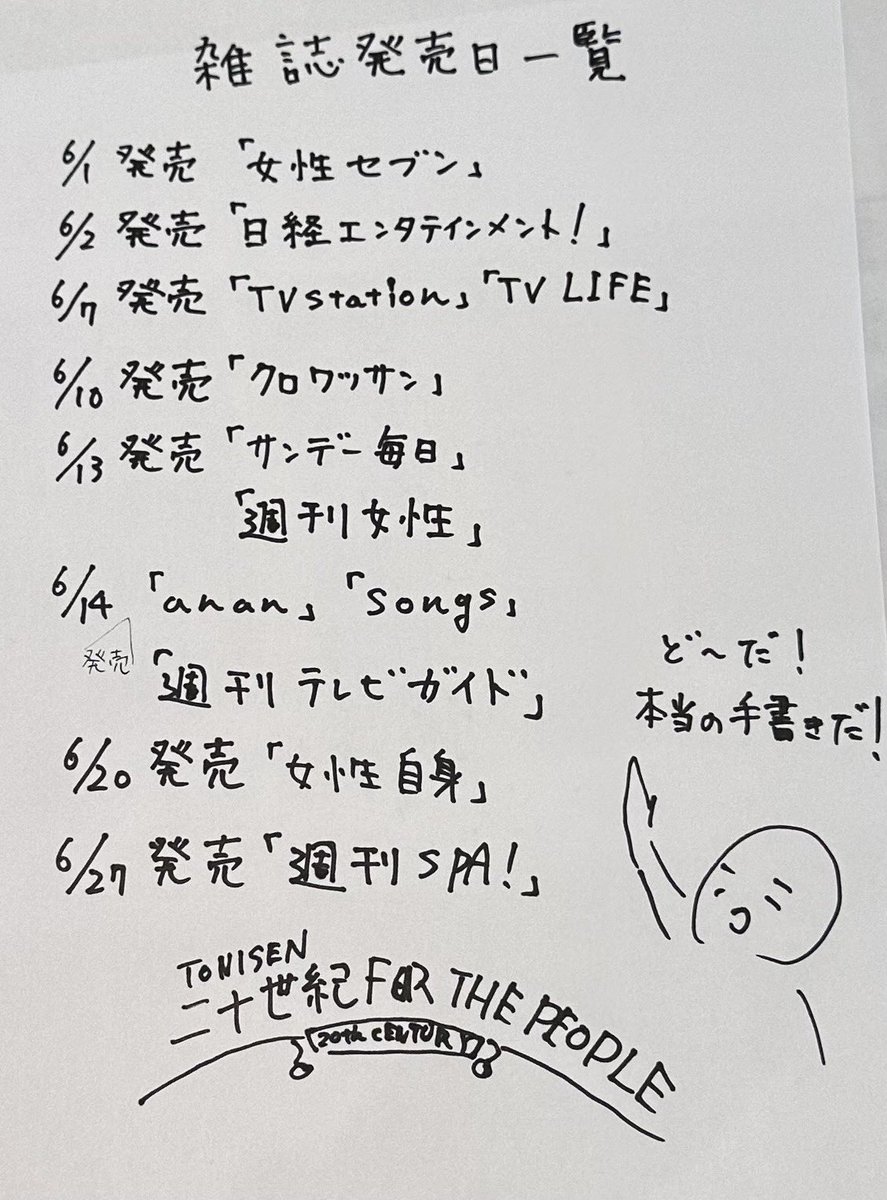 雑誌発売日一覧
6/1 発売 「女性セブン」
6/2 発売 「日経エンタテインメント!」
6/7 発売 「TVstation」「TV LIFE」
6/10 発売 「クロワッサン」
6/13 発売 「サンデー毎日」
「週刊女性」
6/14 「anan」 「songs」
発売
「週刊テレビガイド」
6/20 発売 「女性自身」
6/27 発売 「週刊SPA!」
ど〜だ!
本当の手書きだ!
TONISEN
二十世紀 FOR THE PEOPLE
20th CENTURY